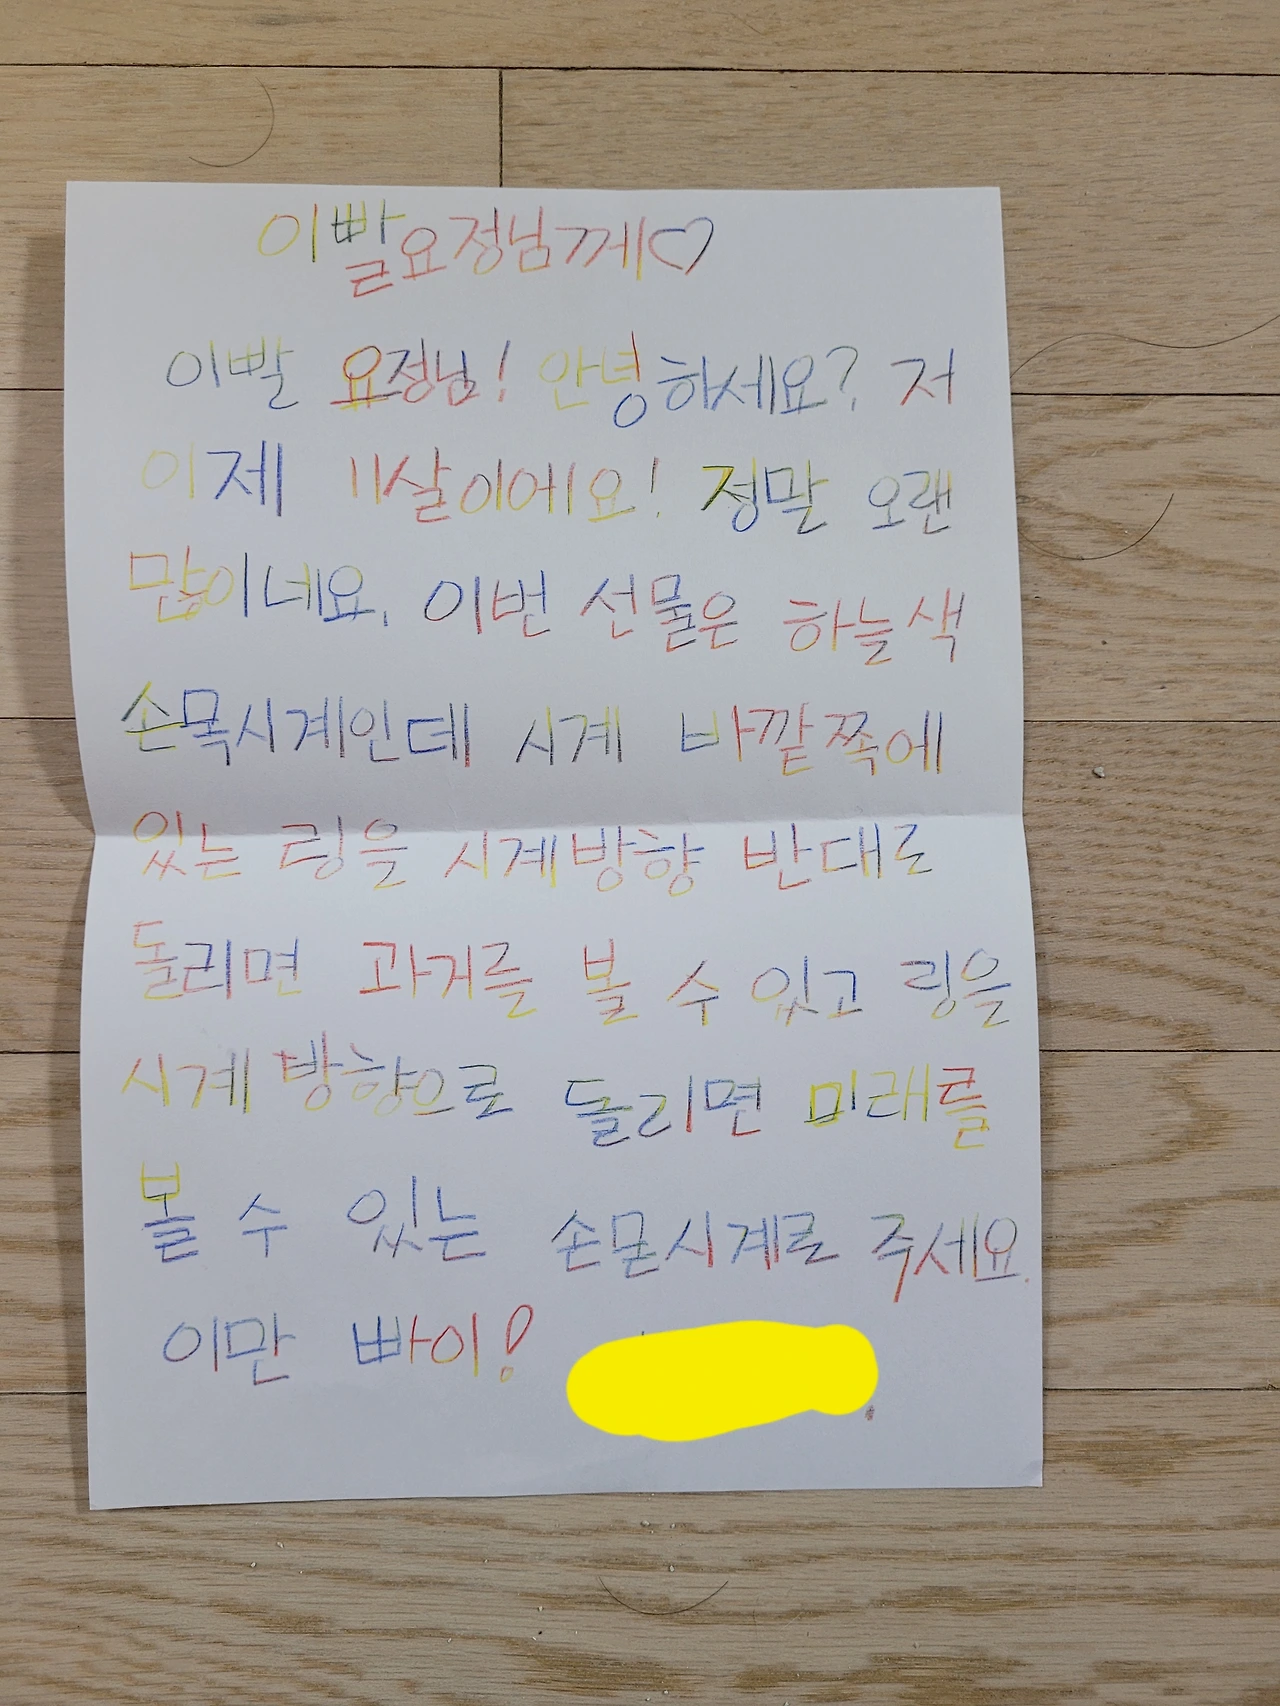 이빨요정님께♡
이빨 요정님! 안녕하세요? 저
이제 11살이에요! 정말 오랜
많이네요. 이번 선물은 하늘색
손목시계인데 시계 바깥쪽에
있는 링을 시계방향 반대로
돌리면 과거를 볼 수 있고 링을
시계 방향으로 돌리면 미래를
볼 수 있는 손몬시계로 주세요.
이만 빠이!